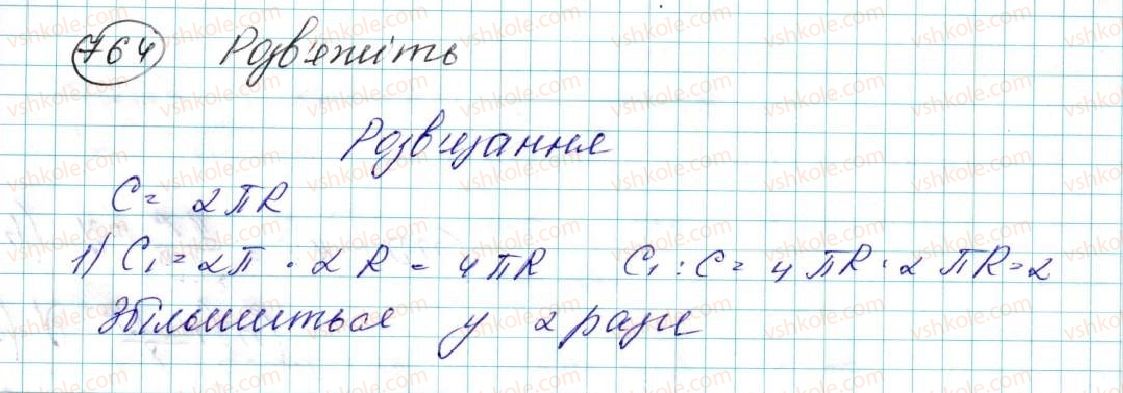 764 Розв'яжіть
Розв'язання
C = 2πR
1) C₁ = 2π · 2R = 4πR C₁ : C = 4πR : 2πR = 2
Збільшиться у 2 рази